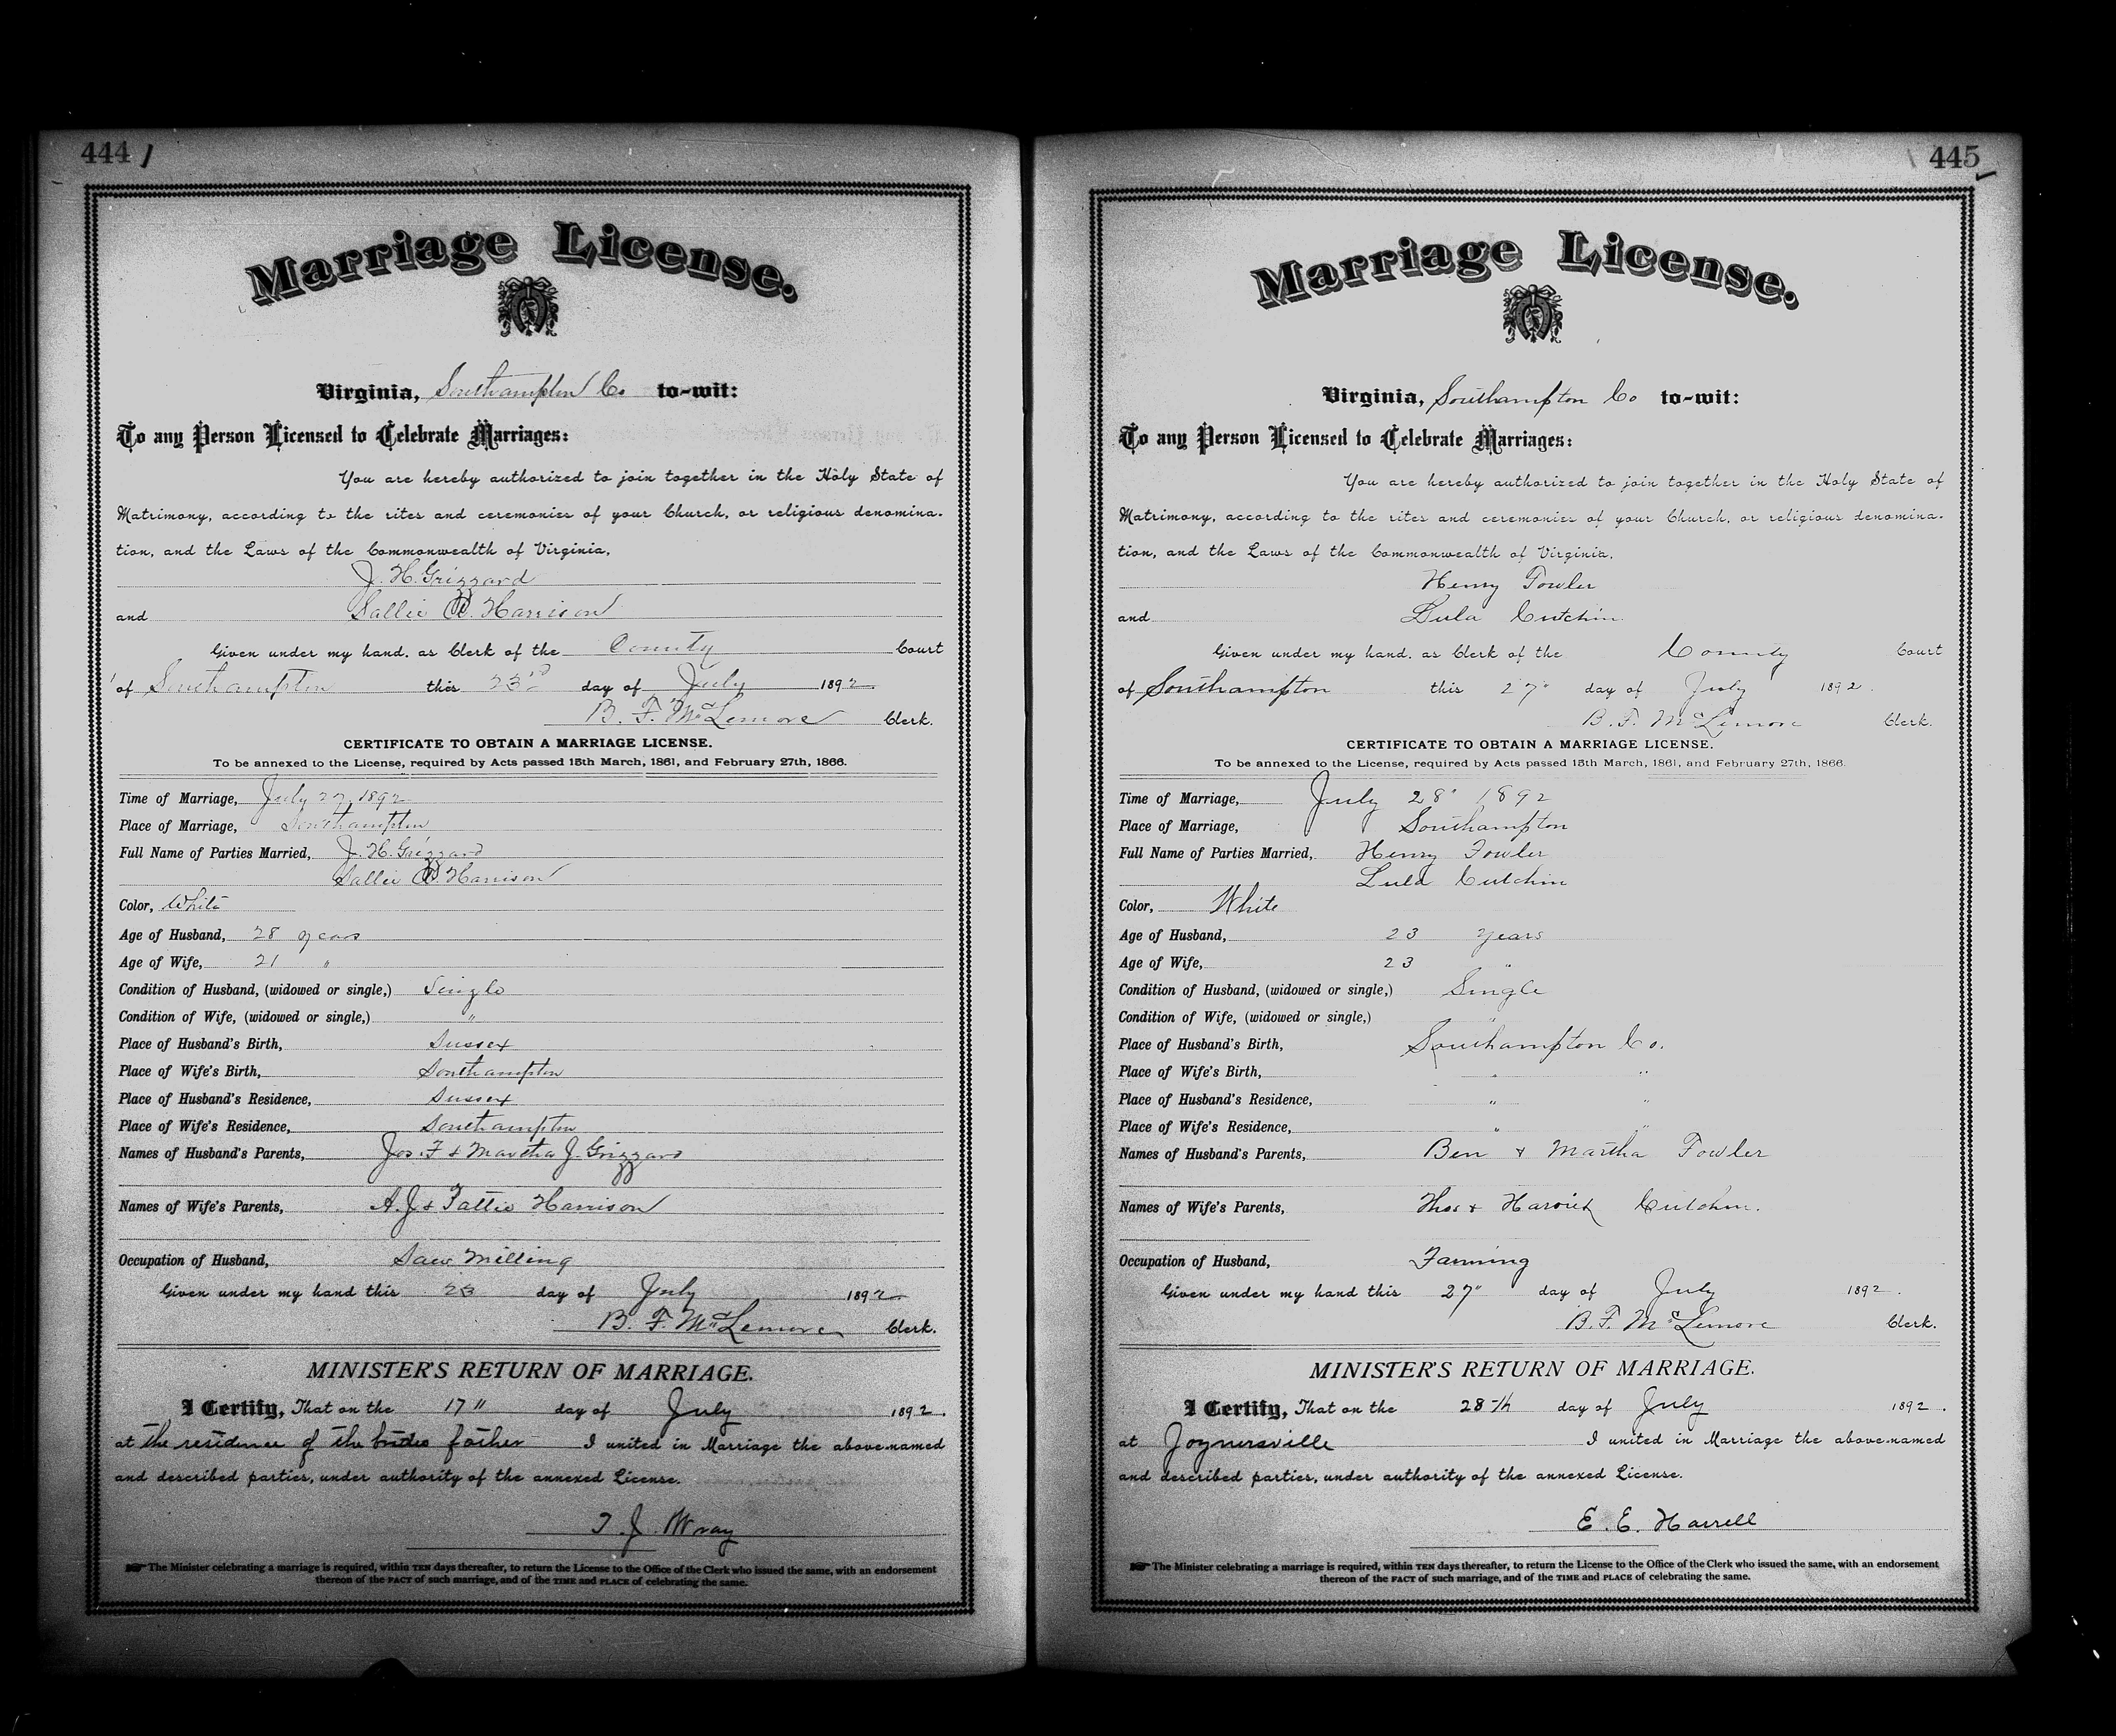 444
Marriage License.
Virginia, Southampton Co to-wit:
To any Person Licensed to Celebrate Marriages:
You are hereby authorized to join together in the Holy State of
Matrimony, according to the rites and ceremonies of your Church, or religious denomina-
tion, and the Laws of the Commonwealth of Virginia,
J. H. Grizzard
and Sallie B. Harrison
Given under my hand, as Clerk of the County Court
of Southampton this 23rd day of July 1892
B. F. McLemore Clerk.
CERTIFICATE TO OBTAIN A MARRIAGE LICENSE.
To be annexed to the License, required by Acts passed 15th March, 1861, and February 27th, 1866.
Time of Marriage, July 27, 1892
Place of Marriage, Southampton
Full Name of Parties Married, J. H. Grizzard
Sallie B. Harrison
Color, White
Age of Husband, 28 years
Age of Wife, 21 "
Condition of Husband, (widowed or single,) Single
Condition of Wife, (widowed or single,) "
Place of Husband's Birth, Sussex
Place of Wife's Birth, Southampton
Place of Husband's Residence, Sussex
Place of Wife's Residence, Southampton
Names of Husband's Parents, Jos. F & Martha J. Grizzard
Names of Wife's Parents, A. J & Pattie Harrison
Occupation of Husband, Saw Milling
Given under my hand this 23 day of July 1892
B. F. McLemore Clerk.
MINISTER'S RETURN OF MARRIAGE.
I Certify, That on the 17" day of July 1892.
at the residence of the brides father I united in Marriage the above-named
and described parties, under authority of the annexed License.
T. J. Wray
The Minister celebrating a marriage is required, within TEN days thereafter, to return the License to the Office of the Clerk who issued the same, with an endorsement
thereon of the FACT of such marriage, and of the TIME and PLACE of celebrating the same.
445
Marriage License.
Virginia, Southampton Co to-wit:
To any Person Licensed to Celebrate Marriages:
You are hereby authorized to join together in the Holy State of
Matrimony, according to the rites and ceremonies of your Church, or religious denomina-
tion, and the Laws of the Commonwealth of Virginia,
Henry Fowler
and Lula Cutchin
Given under my hand, as Clerk of the County Court
of Southampton this 27" day of July 1892.
B. F. McLemore Clerk.
CERTIFICATE TO OBTAIN A MARRIAGE LICENSE.
To be annexed to the License, required by Acts passed 15th March, 1861, and February 27th, 1866.
Time of Marriage, July 28" 1892
Place of Marriage, Southampton
Full Name of Parties Married, Henry Fowler
Lula Cutchin
Color, White
Age of Husband, 23 Years
Age of Wife, 23 "
Condition of Husband, (widowed or single,) Single
Condition of Wife, (widowed or single,) "
Place of Husband's Birth, Southampton Co.
Place of Wife's Birth, " "
Place of Husband's Residence, " "
Place of Wife's Residence, " "
Names of Husband's Parents, Ben & Martha Fowler
Names of Wife's Parents, Thos & Cutchin.
Occupation of Husband, Farming
Given under my hand this 27" day of July 1892.
B. F. McLemore Clerk.
MINISTER'S RETURN OF MARRIAGE.
I Certify, That on the 28th day of July 1892.
at Joynersville I united in Marriage the above-named
and described parties, under authority of the annexed License.
E. E. Harrell
The Minister celebrating a marriage is required, within TEN days thereafter, to return the License to the Office of the Clerk who issued the same, with an endorsement
thereon of the FACT of such marriage, and of the TIME and PLACE of celebrating the same.